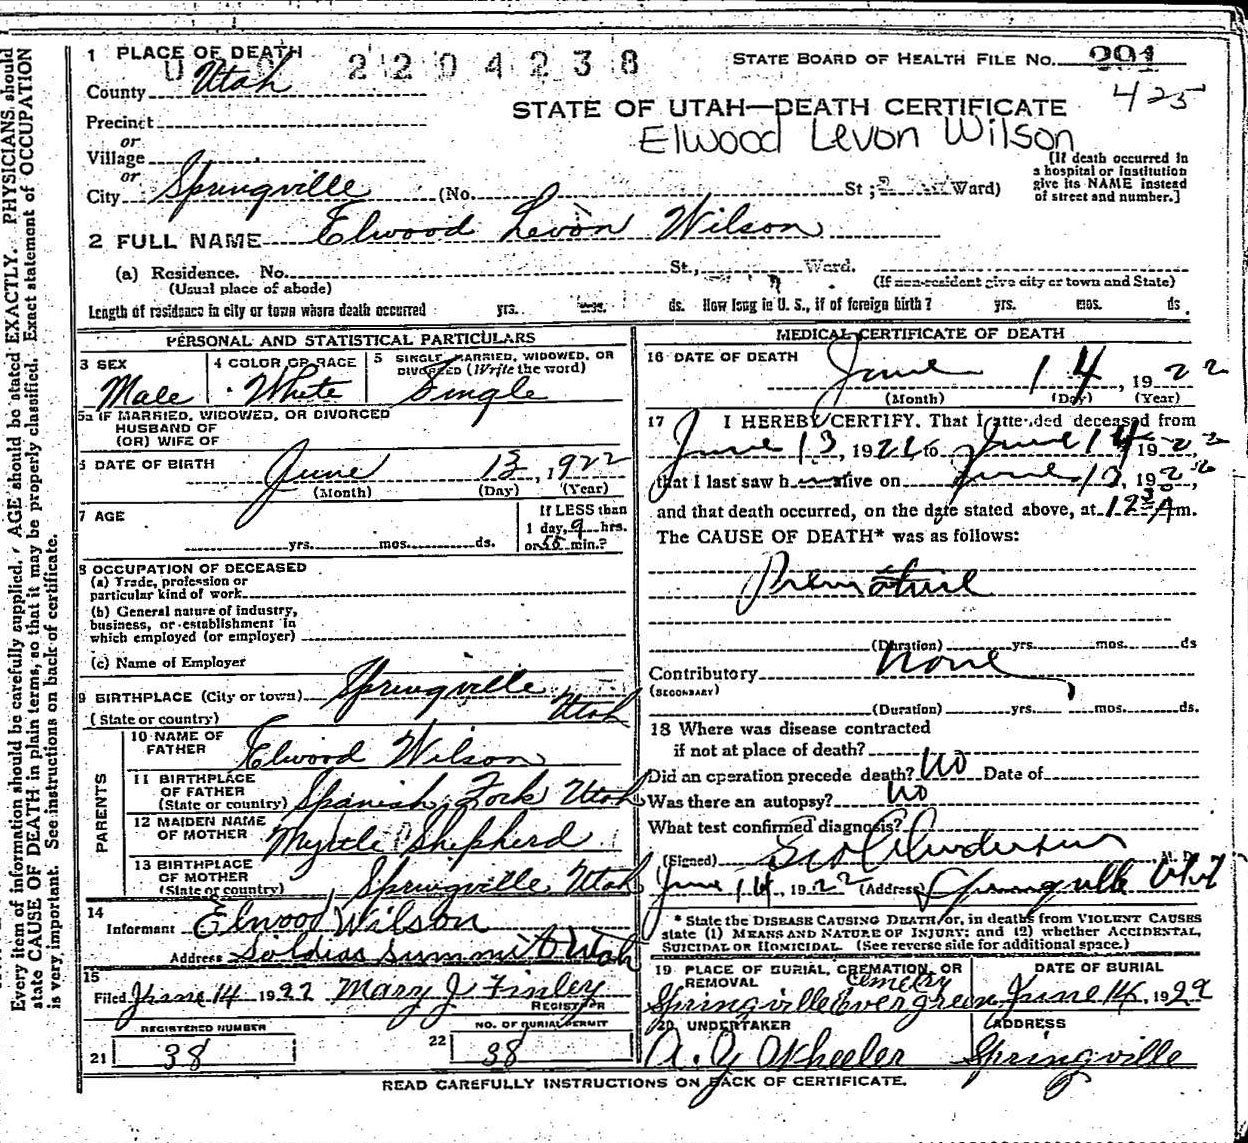 1 PLACE OF DEATH
2204238
STATE BOARD OF HEALTH FILE No. 201
425
County Utah
STATE OF UTAH—DEATH CERTIFICATE
Elwood Levon Wilson
Precinct
or
Village
or
City Springville (No. St; 2 Ward)
[If death occurred in
a hospital or institution
give its NAME instead
of street and number.]
2 FULL NAME Elwood Levon Wilson
(a) Residence. No. St., Ward.
(Usual place of abode) (If non-resident give city or town and State)
Length of residence in city or town where death occurred yrs. mos. ds. How long in U. S., if of foreign birth? yrs. mos. ds.
PERSONAL AND STATISTICAL PARTICULARS
3 SEX
Male
4 COLOR OR RACE
White
5 SINGLE, MARRIED, WIDOWED, OR
DIVORCED (Write the word)
Single
5a IF MARRIED, WIDOWED, OR DIVORCED
HUSBAND OF
(OR) WIFE OF
6 DATE OF BIRTH June 13, 1922
(Month) (Day) (Year)
7 AGE
yrs. mos. ds.
If LESS than
1 day, 9 hrs.
or 55 min.?
8 OCCUPATION OF DECEASED
(a) Trade, profession or
particular kind of work
(b) General nature of industry,
business, or establishment in
which employed (or employer)
(c) Name of Employer
9 BIRTHPLACE (City or town) Springville
(State or country) Utah
PARENTS
10 NAME OF
FATHER Elwood Wilson
11 BIRTHPLACE
OF FATHER
(State or country) Spanish Fork Utah
12 MAIDEN NAME
OF MOTHER Myrtle Shepherd
13 BIRTHPLACE
OF MOTHER
(State or country) Springville Utah
14
Informant Elwood Wilson
Address Soldias Summit Utah
15
Filed June 14 1922 Mary J Finley
REGISTRAR
REGISTERED NUMBER
21 38
NO. OF BURIAL PERMIT
22 38
MEDICAL CERTIFICATE OF DEATH
16 DATE OF DEATH
June 14, 1922
(Month) (Day) (Year)
17 I HEREBY CERTIFY, That I attended deceased from
June 13, 1922 to June 14 1922
that I last saw h alive on June 13, 192
and that death occurred, on the date stated above, at 12 30 A m.
The CAUSE OF DEATH* was as follows:
Premature
(Duration) yrs. mos. ds
Contributory None
(SECONDARY)
(Duration) yrs. mos. ds.
18 Where was disease contracted
if not at place of death?
Did an operation precede death? No Date of
Was there an autopsy? No
What test confirmed diagnosis?
(Signed) Anderson M. D.
June 14, 1922 (Address) Springville Utah
* State the DISEASE CAUSING DEATH, or, in deaths from VIOLENT CAUSES
state (1) MEANS AND NATURE OF INJURY; and (2) whether ACCIDENTAL,
SUICIDAL OR HOMICIDAL. (See reverse side for additional space.)
19 PLACE OF BURIAL, CREMATION, OR
REMOVAL Cemetry
Springville Evergreen
DATE OF BURIAL
June 14, 1922
20 UNDERTAKER
A. Y Wheeler
ADDRESS
Springville
READ CAREFULLY INSTRUCTIONS ON BACK OF CERTIFICATE.
Every item of information should be carefully supplied. AGE should be stated EXACTLY. PHYSICIANS should
state CAUSE OF DEATH in plain terms, so that it may be properly classified. Exact statement of OCCUPATION
is very important. See instructions on back of certificate.